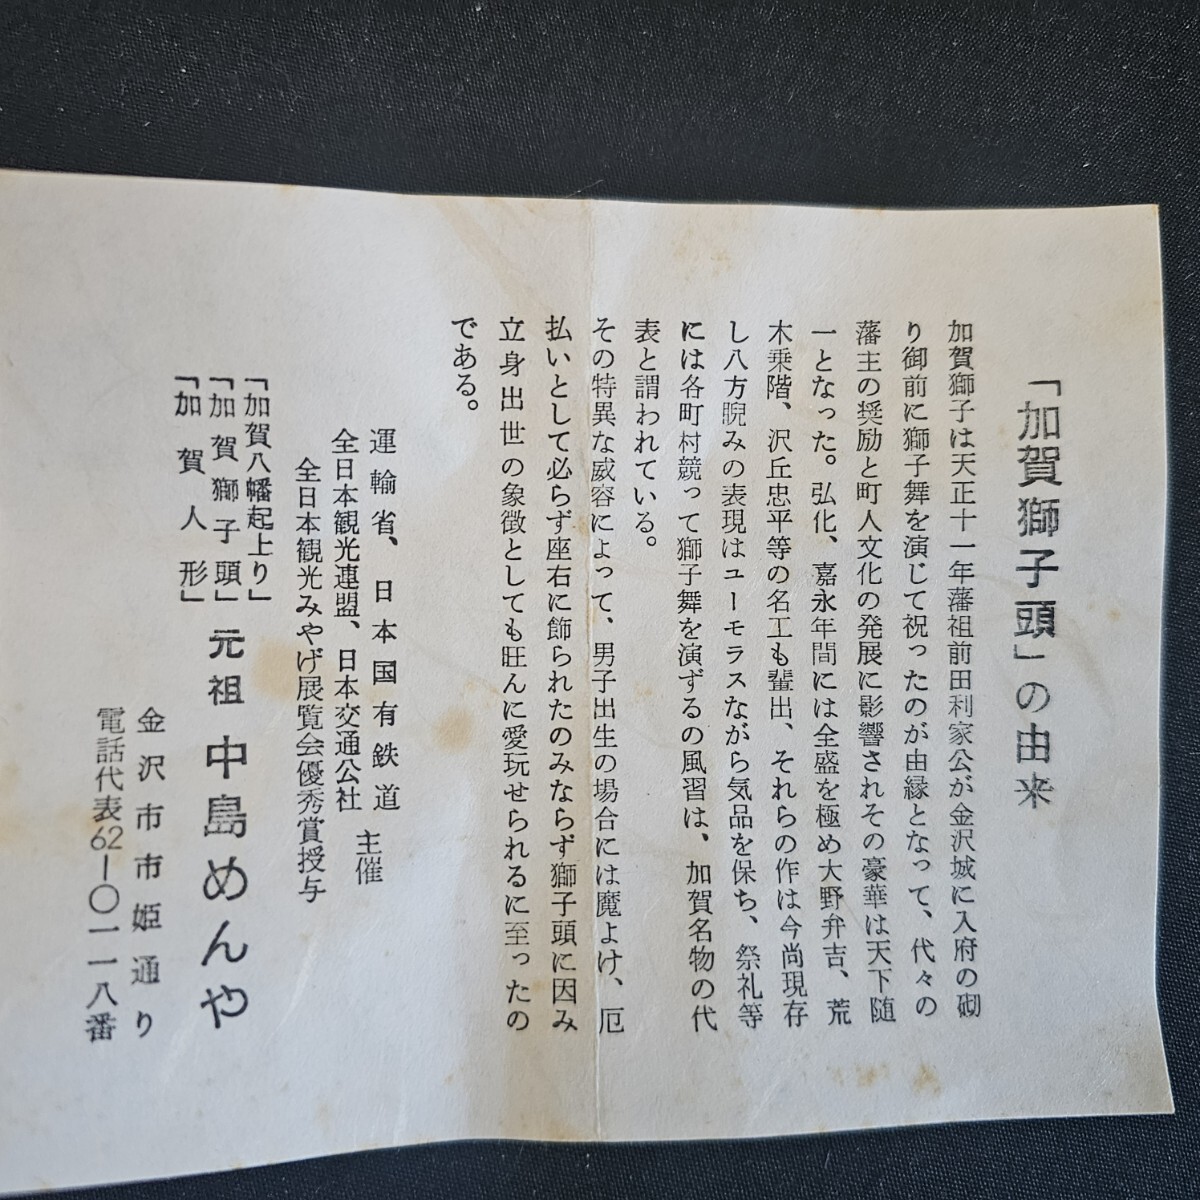 「加賀獅子頭」の由来
加賀獅子は天正十一年藩祖前田利家公が金沢城に入府の砌
り御前に獅子舞を演じて祝ったのが由縁となって、代々の
藩主の奨励と町人文化の発展に影響されその豪華は天下随
一となった。弘化、嘉永年間には全盛を極め大野弁吉、荒
木乗階、沢丘忠平等の名工も輩出、それらの作は今尚現存
し八方睨みの表現はユーモラスながら気品を保ち、祭礼等
には各町村競って獅子舞を演ずるの風習は、加賀名物の代
表と謂われている。
その特異な威容によって、男子出生の場合には魔よけ、厄
払いとして必らず座右に飾られたのみならず獅子頭に因み
立身出世の象徴としても旺んに愛玩せられるに至ったの
である。
運輸省、日本国有鉄道
全日本観光連盟、日本交通公社
主催
全日本観光みやげ展覧会優秀賞授与
「加賀八幡起上り」
「加賀獅子頭」
「加賀人形」
元祖 中島めんや
金沢市市姫通り
電話代表62―〇一一八番